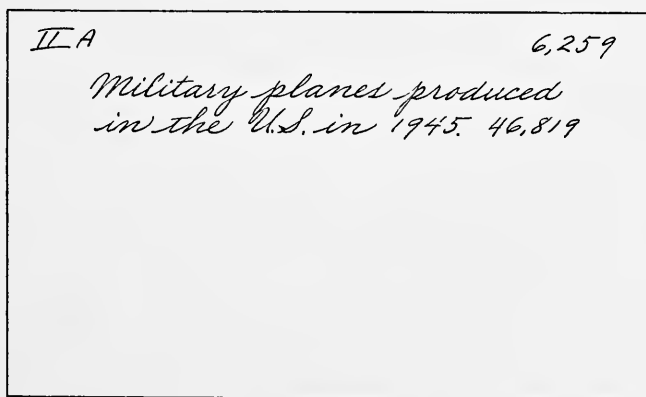 II A 6,259
Military planes produced
in the U.S. in 1945. 46,819